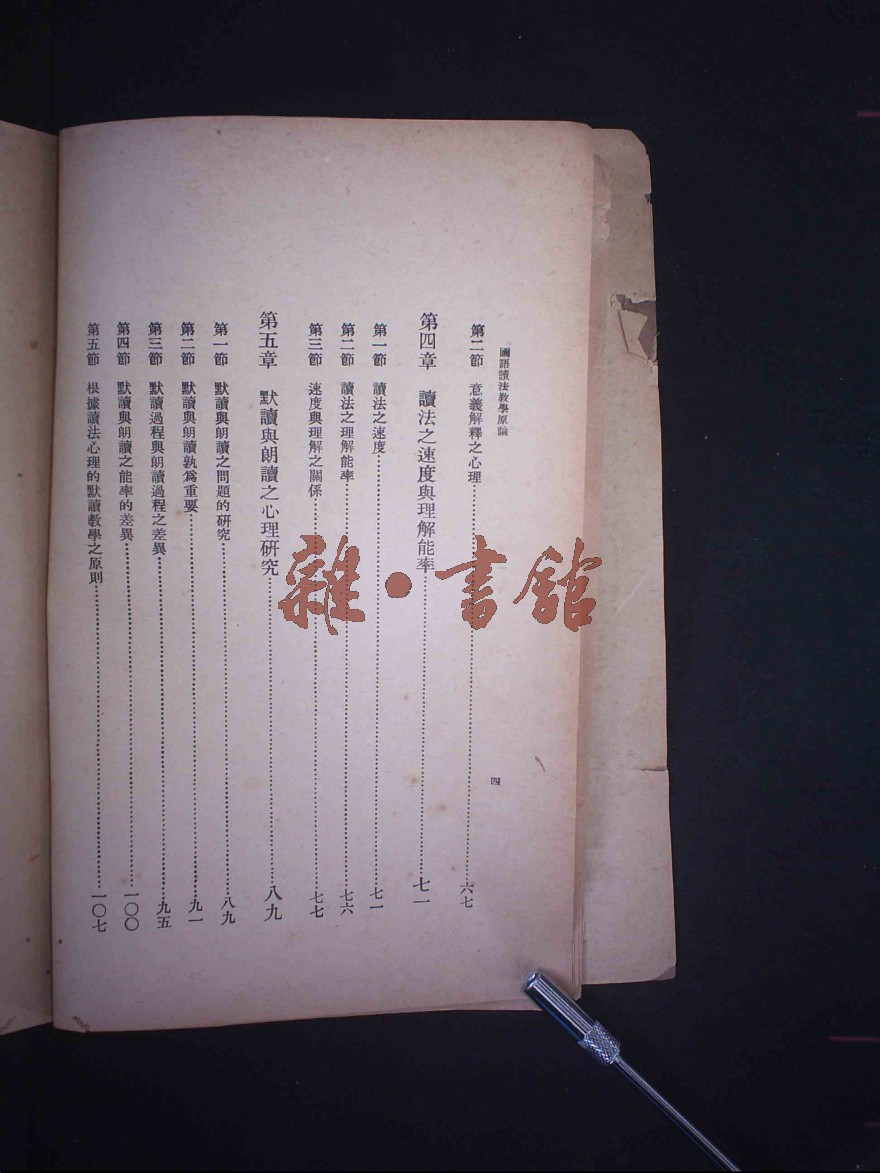 國語讀法教學原論
四
第二節 意義解釋之心理 六七
第四章 讀法之速度與理解能率 七一
第一節 讀法之速度 七一
第二節 讀法之理解能率 七六
第三節 速度與理解之關係 七七
第五章 默讀與朗讀之心理研究 八九
第一節 默讀與朗讀之問題的研究 八九
第二節 默讀與朗讀孰爲重要 九一
第三節 默讀過程與朗讀過程之差異 九五
第四節 默讀與朗讀之能率的差異 一〇〇
第五節 根據讀法心理的默讀教學之原則 一〇七
雜·書館